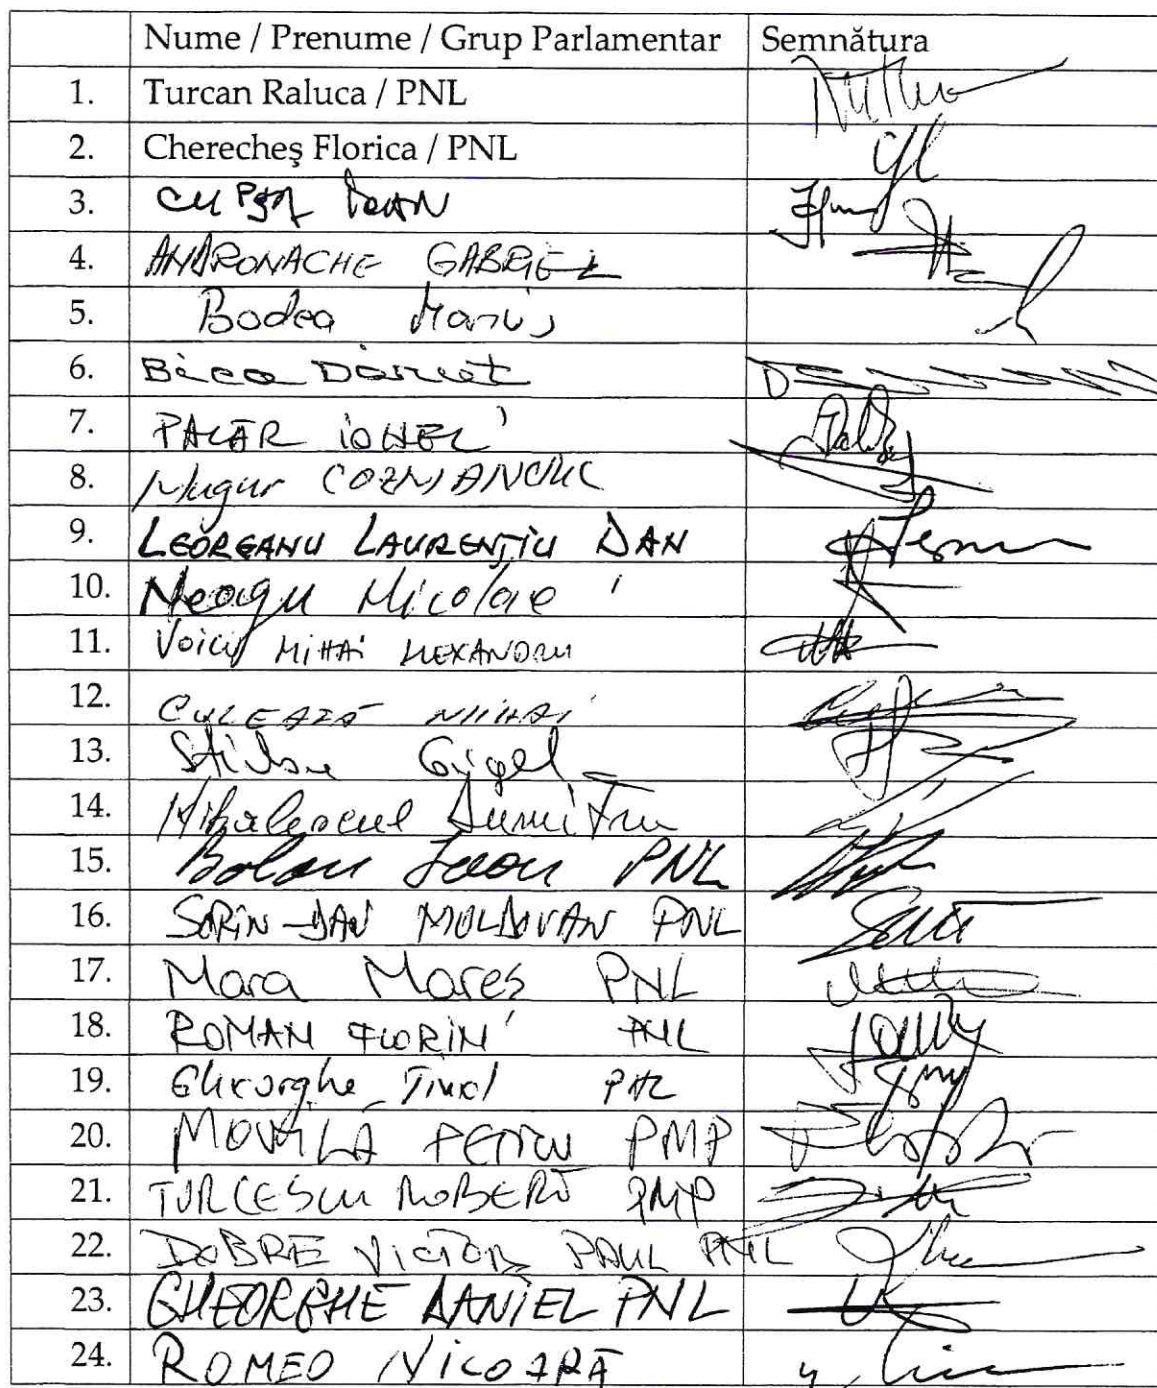 Nume / Prenume / Grup Parlamentar Semnătura
1. Turcan Raluca / PNL
2. Cherecheş Florica / PNL
3. CUPȘA IOAN
4. ANDRONACHE GABRIEL
5. Bodea Marius
6. Bica Daniel
7. PALAR IONEL
8. Mugur COZMANCIUC
9. LEOREANU LAURENȚIU DAN
10. Neagu Nicolae
11. Voicu MIHAI ALEXANDRU
12. CULEAȚĂ MIHAI
13. Știrbu Gigel
14. Mihalescul Dumitru
15. Bolan Ioan PNL
16. SORIN-DAN MOLDOVAN PNL
17. Mara Mares PNL
18. ROMAN FLORIN PNL
19. Gheorghe Tinel PNL
20. MOVILĂ PETRU PMP
21. TURCESCU ROBERT PMP
22. DOBRE VICTOR PAUL PNL
23. GHEORGHE DANIEL PNL
24. ROMEO NICOARĂ